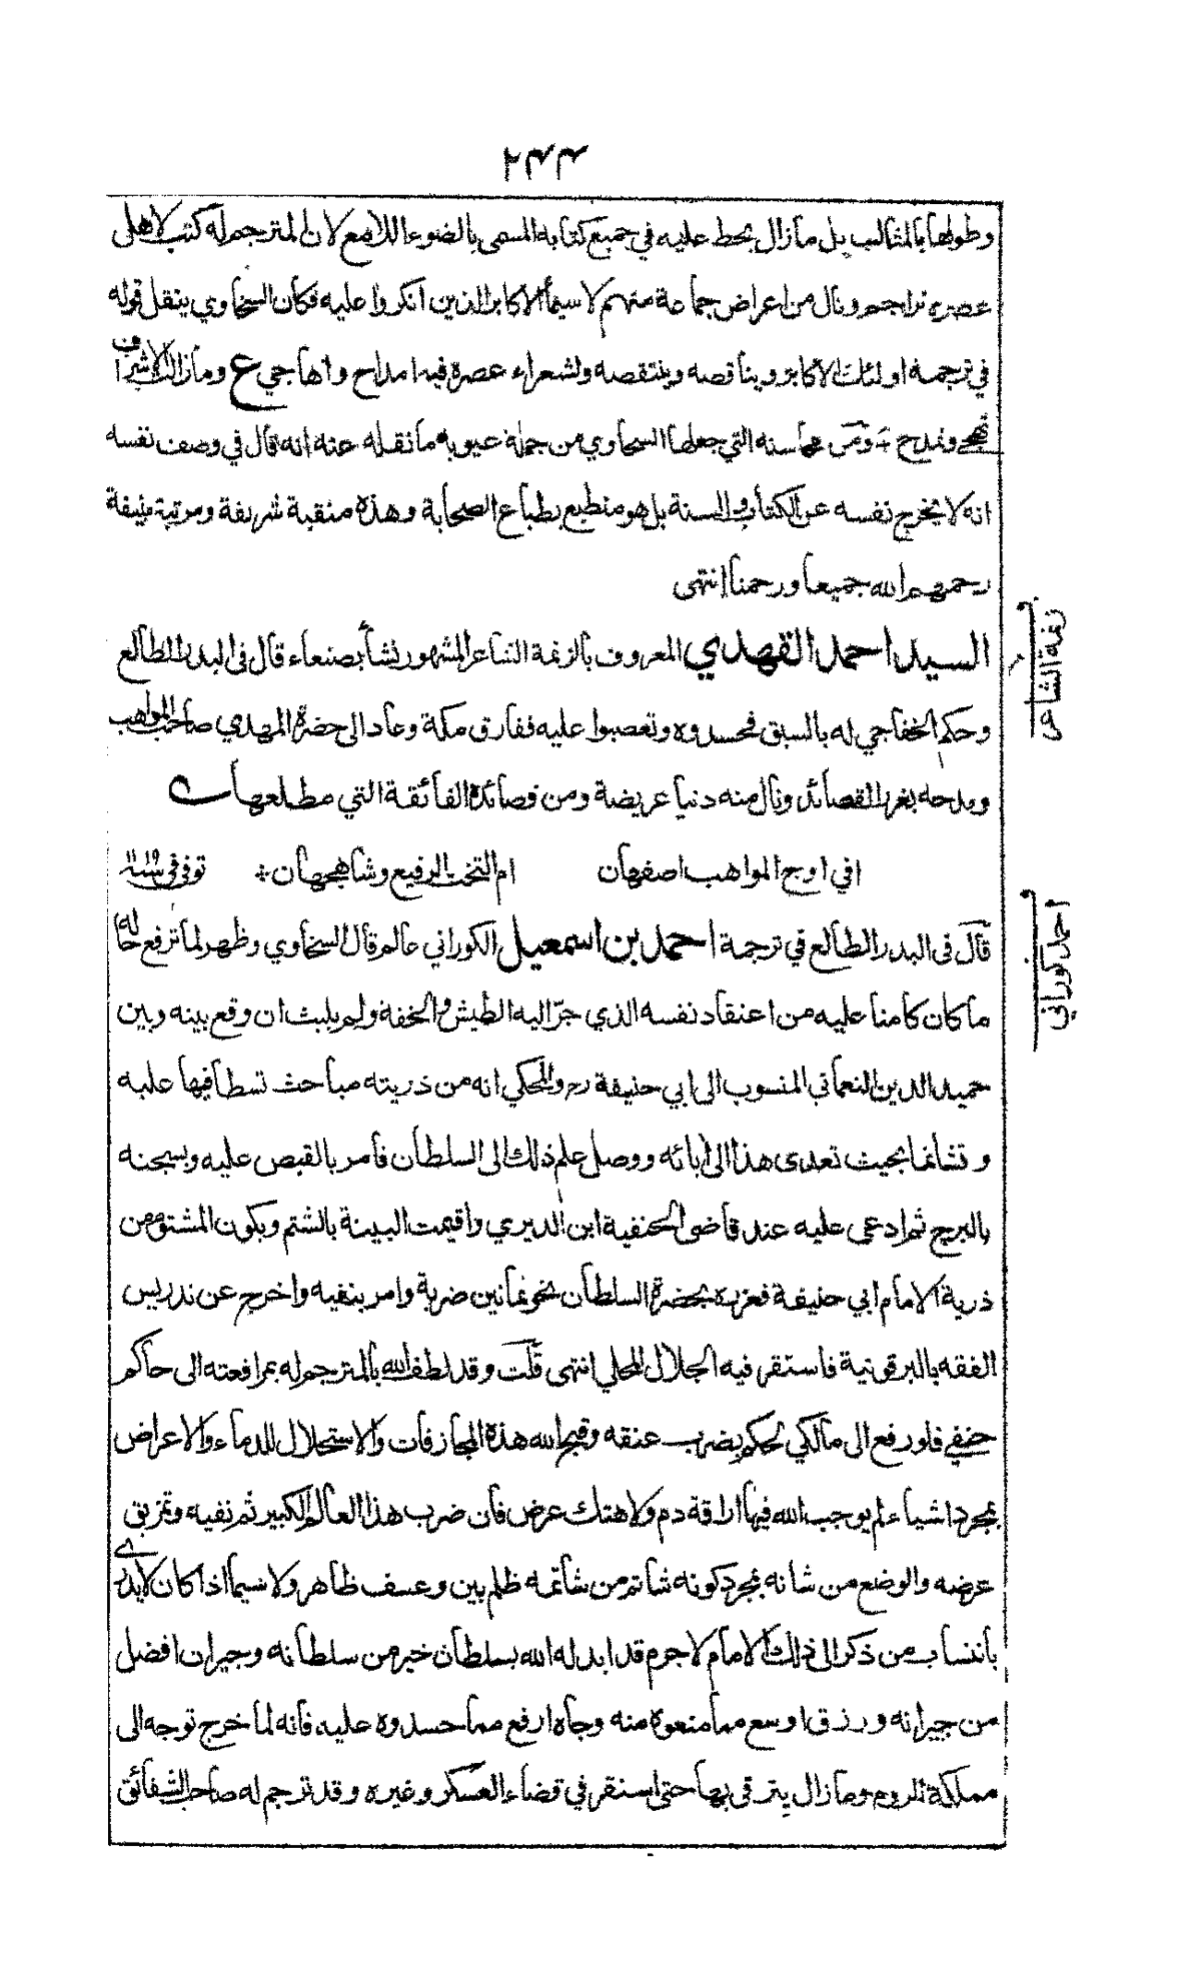 ٢٤٤
وطولها بالمثالب بل مازال يحط عليه في جميع كتابه المسمى بالضوء اللامع لان المترجم له كتب لاهلى
عصره تراجم ونال من اعراض جماعة منهم لاسيما الاكابر الذين انكروا عليه فكان السخاوي ينقل قوله
في ترجمة اولئك الاكابر ويناقصه وينتقصه ولشعراء عصره فيه امداح واهاجي ع ومازالت الاشراف
تهجى وتمدح ومن محاسنه التي جعلها السخاوي من جملة عيوبه مانقله عنه انه قال في وصف نفسه
انه لا يخرج نفسه عن الكتاب والسنة بل هو منطبع بطباع الصحابة وهذه منقبة شريفة ومرتبة منيفة
رحمهم الله جميعا ورحمنا انتهى
السيد احمد القهدي المعروف بالزنمة الشاعر المشهور نشأ بصنعاء قال فى البدر الطالع
وحكم الخفاجي له بالسبق فحسدوه وتعصبوا عليه ففارق مكة وعاد الى حضرة المهدي صاحب المواهب
ومدحه بغرر القصائد ونال منه دنيا عريضة ومن قصائده الفائقة التي مطلعها
افي اوج المواهب اصفهان ام التخت الرفيع وشاهجهان توفي في سنة ١١١٩
قال فى البدر الطالع في ترجمة احمد بن اسمعيل الكوراني عالم قال السخاوي وظهر لما ترفع حاله
ما كان كامنا عليه من اعتقاد نفسه الذي جرّ اليه الطيش والخفة ولم يلبث ان وقع بينه وبين
حميد الدين النعماني المنسوب الى ابي حنيفة رح والمحكي انه من ذريته مباحث تسطا فيها عليه
وتشاتما بحيث تعدى هذا الى ابائه ووصل علم ذلك الى السلطان فامر بالقبض عليه وبسجنه
بالبرج ثم ادعى عليه عند قاضى الحنفية ابن الديري واقيمت البينة بالشتم وبكون المشتوم من
ذرية الامام ابي حنيفة فعزره بحضرة السلطان نحو ثمانين ضربة وامر بنفيه واخرج عن تدريس
الفقه بالبرقوقية فاستقر فيه الجلال المحلي انتهى قلت وقد لطف الله بالمترجم له بمرافعته الى حاكم
حنفي فلو رفع الى مالكي لحكم بضرب عنقه وقبح الله هذه المجازفات والاستحلال للدماء والاعراض
بمجرد اشياء لم يوجب الله فيها اراقة دم ولا هتك عرض فان ضرب هذا العالم الكبير ثم نفيه وتمزيق
عرضه والوضع من شانه بمجرد كونه شاتم من شاتمه ظلم بين وعسف ظاهر ولاسيما اذا كان لا يدرى
بانتساب من ذكر الى ذلك الامام لا جرم قد ابدله الله بسلطان خير من سلطانه وجيران افضل
من جيرانه ورزق اوسع مما منعوه منه وجاه ارفع مما حسدوه عليه فانه لما خرج توجه الى
مملكة الروم ومازال يترقى بها حتى استقر في قضاء العسكر وغيره وقد ترجم له صاحب الشقائق
زنمة الشاعر
احمد كوراني